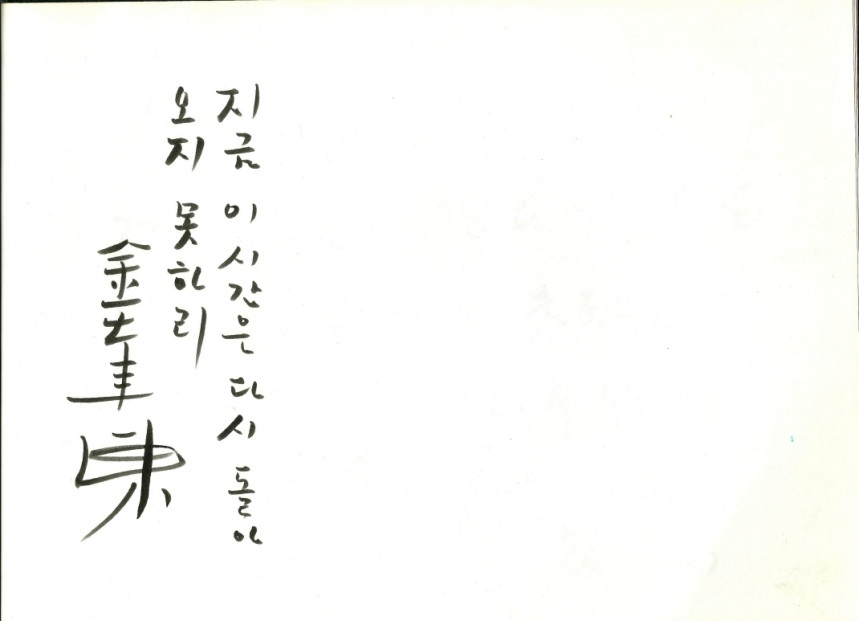 지금 이 시간은 다시 돌아
오지 못하리
金奎東